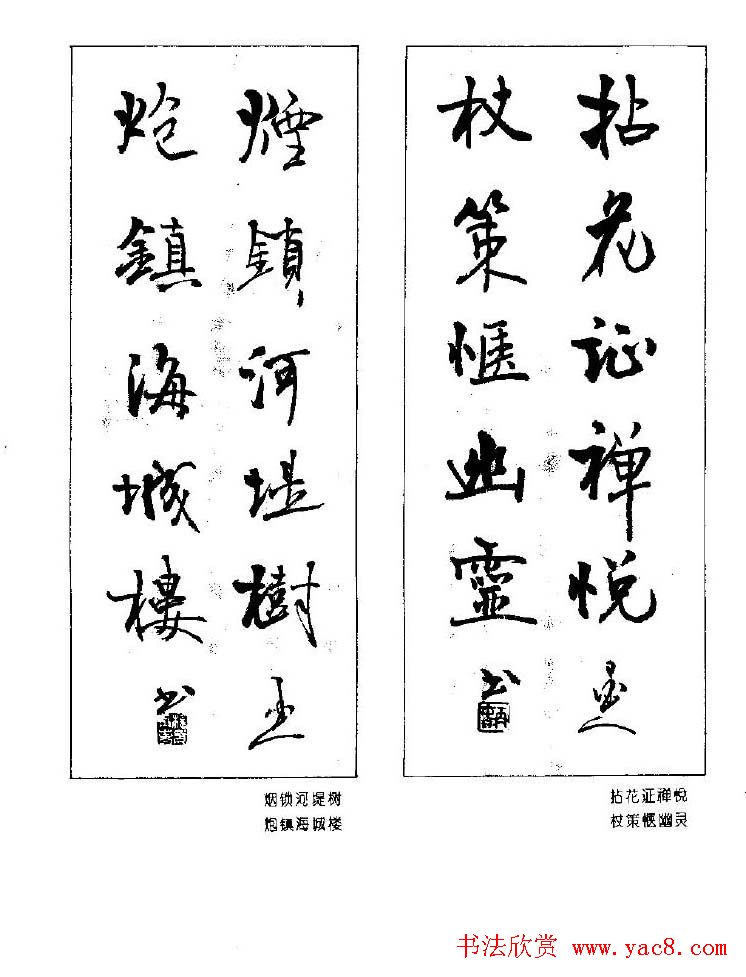 拈花证禪悦
杖策愜幽靈 书
煙鎖河堤樹
炮鎮海城樓 书
拈花证禅悦
杖策惬幽灵
烟锁河堤树
炮镇海城楼
书法欣赏 www.yac8.com